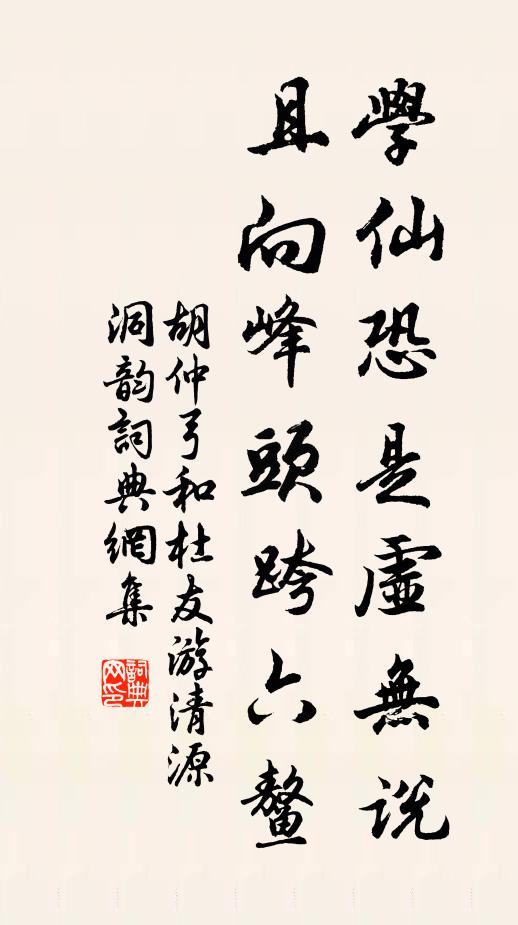 學仙恐是虛無說
且向峰頭跨六鼇
胡仲弓和杜友游清源
洞韵詞典網集
詞典网印